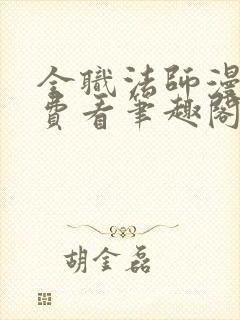 全職法師漫
費看筆趣閣
胡金磊